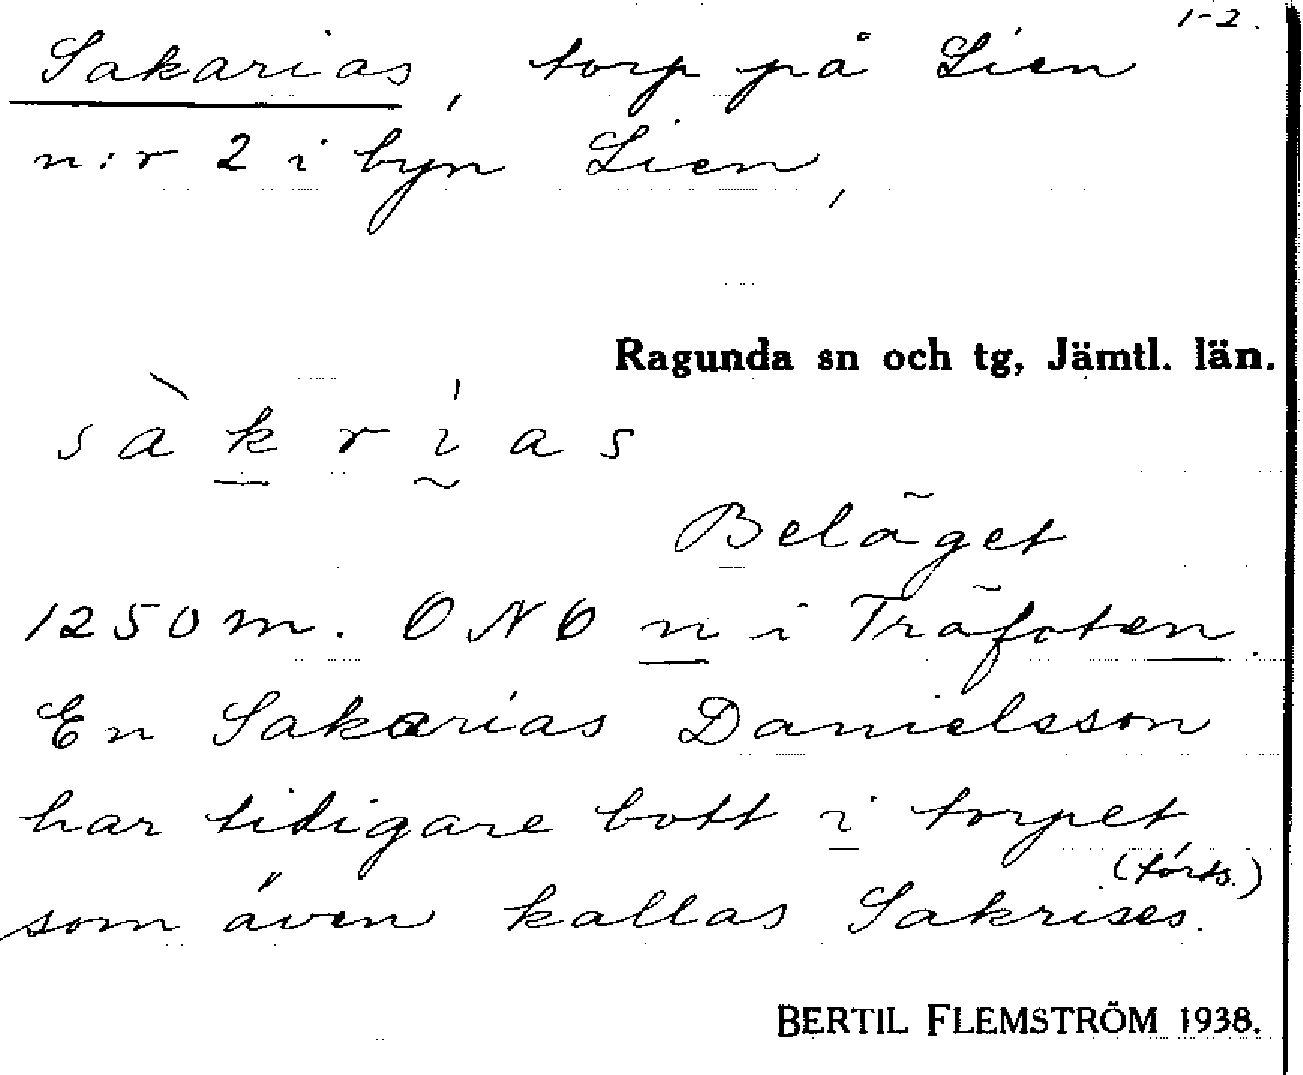 1-2.
Sakarias, torp på Lien
n:r 2 i byn Lien,
Ragunda sn och tg, Jämtl. län.
sàkrías
Beläget
1250 m. ONO n i Träfoten.
En Sakarias Danielsson
har tidigare bott i torpet
(forts.)
som även kallas Sakrises.
BERTIL FLEMSTRÖM 1938.